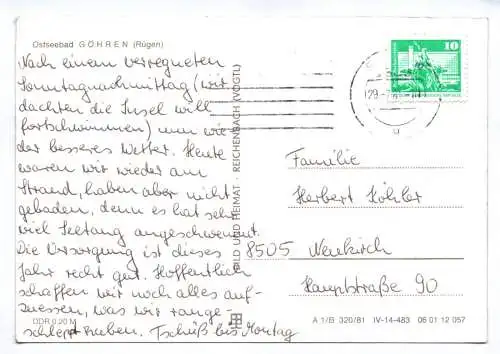 Ostseebad GÖHREN (Rügen)
Nach einem verregneten
Sonntagnachmittag (wir
dachten die Insel will
fortschwimmen) nun wie-
der besseres Wetter. Heute
waren wir wieder am
Strand, haben aber nicht
gebadet, denn es hat sehr
viel Seetang angeschwemmt.
Die Versorgung ist dieses
Jahr recht gut. Hoffentlich
schaffen wir noch alles auf-
zuessen, was wir range-
schleppt haben. Tschüß bis Montag
DDR 0,20 M
BILD UND HEIMAT · REICHENBACH (VOGTL)
10
Familie
Herbert Köhler
8505 Neukirch
Hauptstraße 90
A 1/B 320/81 IV-14-483 06 01 12 057